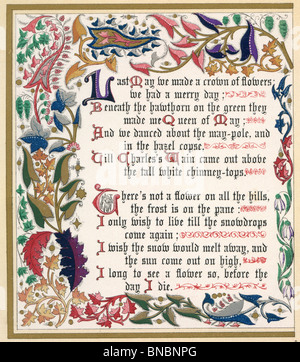 Last May we made a crown of flowers;
we had a merry day;
Beneath the hawthorn on the green they
made me Queen of May;
And we danced about the may-pole, and
in the hazel copse,
Till Charles's Wain came out above
the tall white chimney-tops
There's not a flower on all the hills,
the frost is on the pane;
I only wish to live till the snowdrops
come again;
I wish the snow would melt away, and
the sun come out on high,
I long to see a flower so, before the
day I die.
alamy
BNBNPG
www.alamy.com